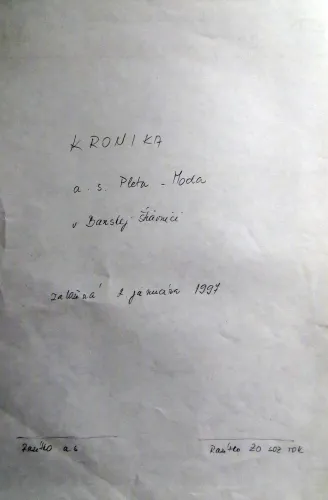 KRONIKA
a. s. Pleta - Moda
v Banskej Štiavnici
založená 1 januára 1997
Razítko a s
Razítko ZO SOZ TOK